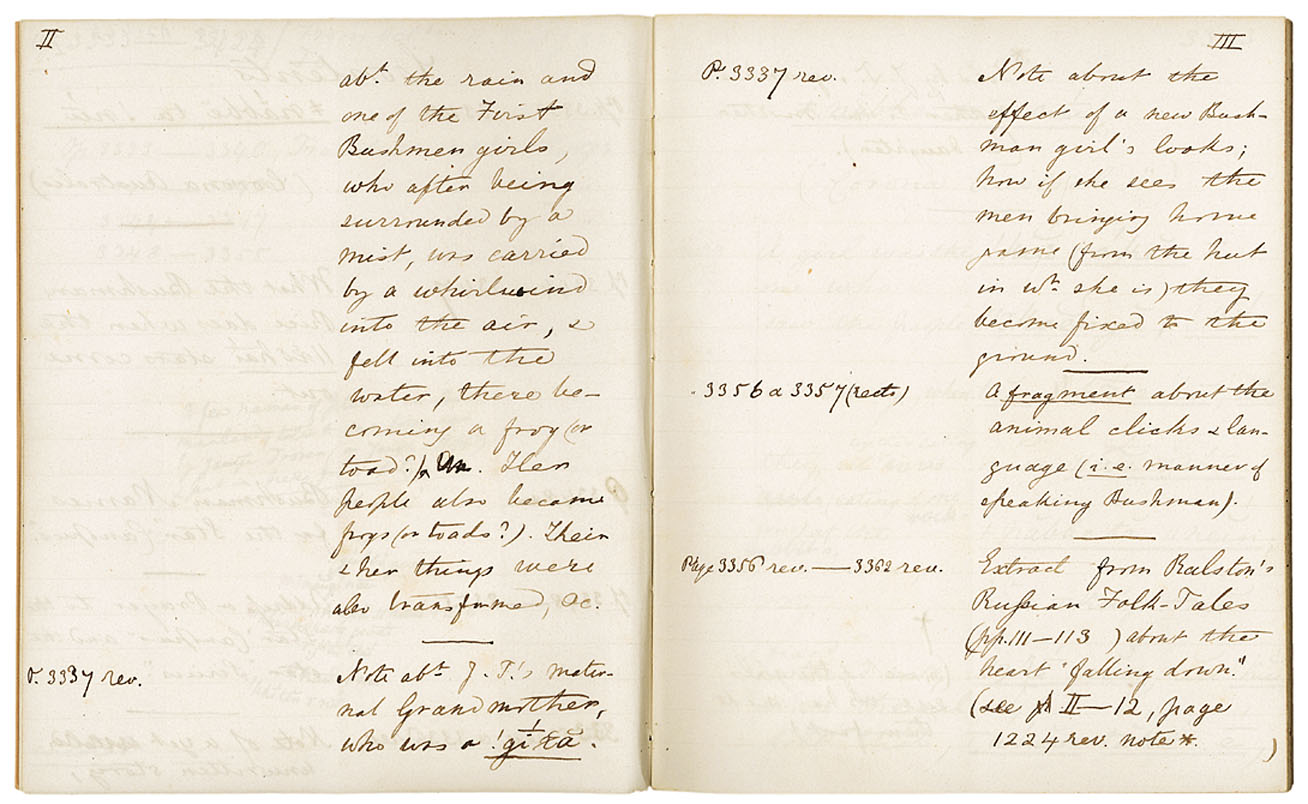 II
abt. the rain and
one of the First
Bushmen girls,
who after being
surrounded by a
mist, was carried
by a whirlwind
into the air, &
fell into the
water, there be-
coming a frog (or
toad?). Her
people also became
frogs (or toads?). Their
& her things were
also transformed, &c.
P. 3337 rev.
Note abt. J. T.'s mater-
nal Grandmother,
who was a !giχa.
III
P. 3337 rev.
Note about the
effect of a new Bush-
man girl's looks;
how if she sees the
men bringing home
game (from the hut
in wh. she is) they
become fixed to the
ground.
3356 a 3357 (rects)
A fragment about the
animal clicks & lan-
guage (i.e. manner of
speaking Bushman).
Page 3356 rev. — 3362 rev.
Extract from Ralston's
Russian Folk-Tales
(pp. 111–113 ) about the
heart "falling down".
(see II–12, page
1224 rev. note *. )